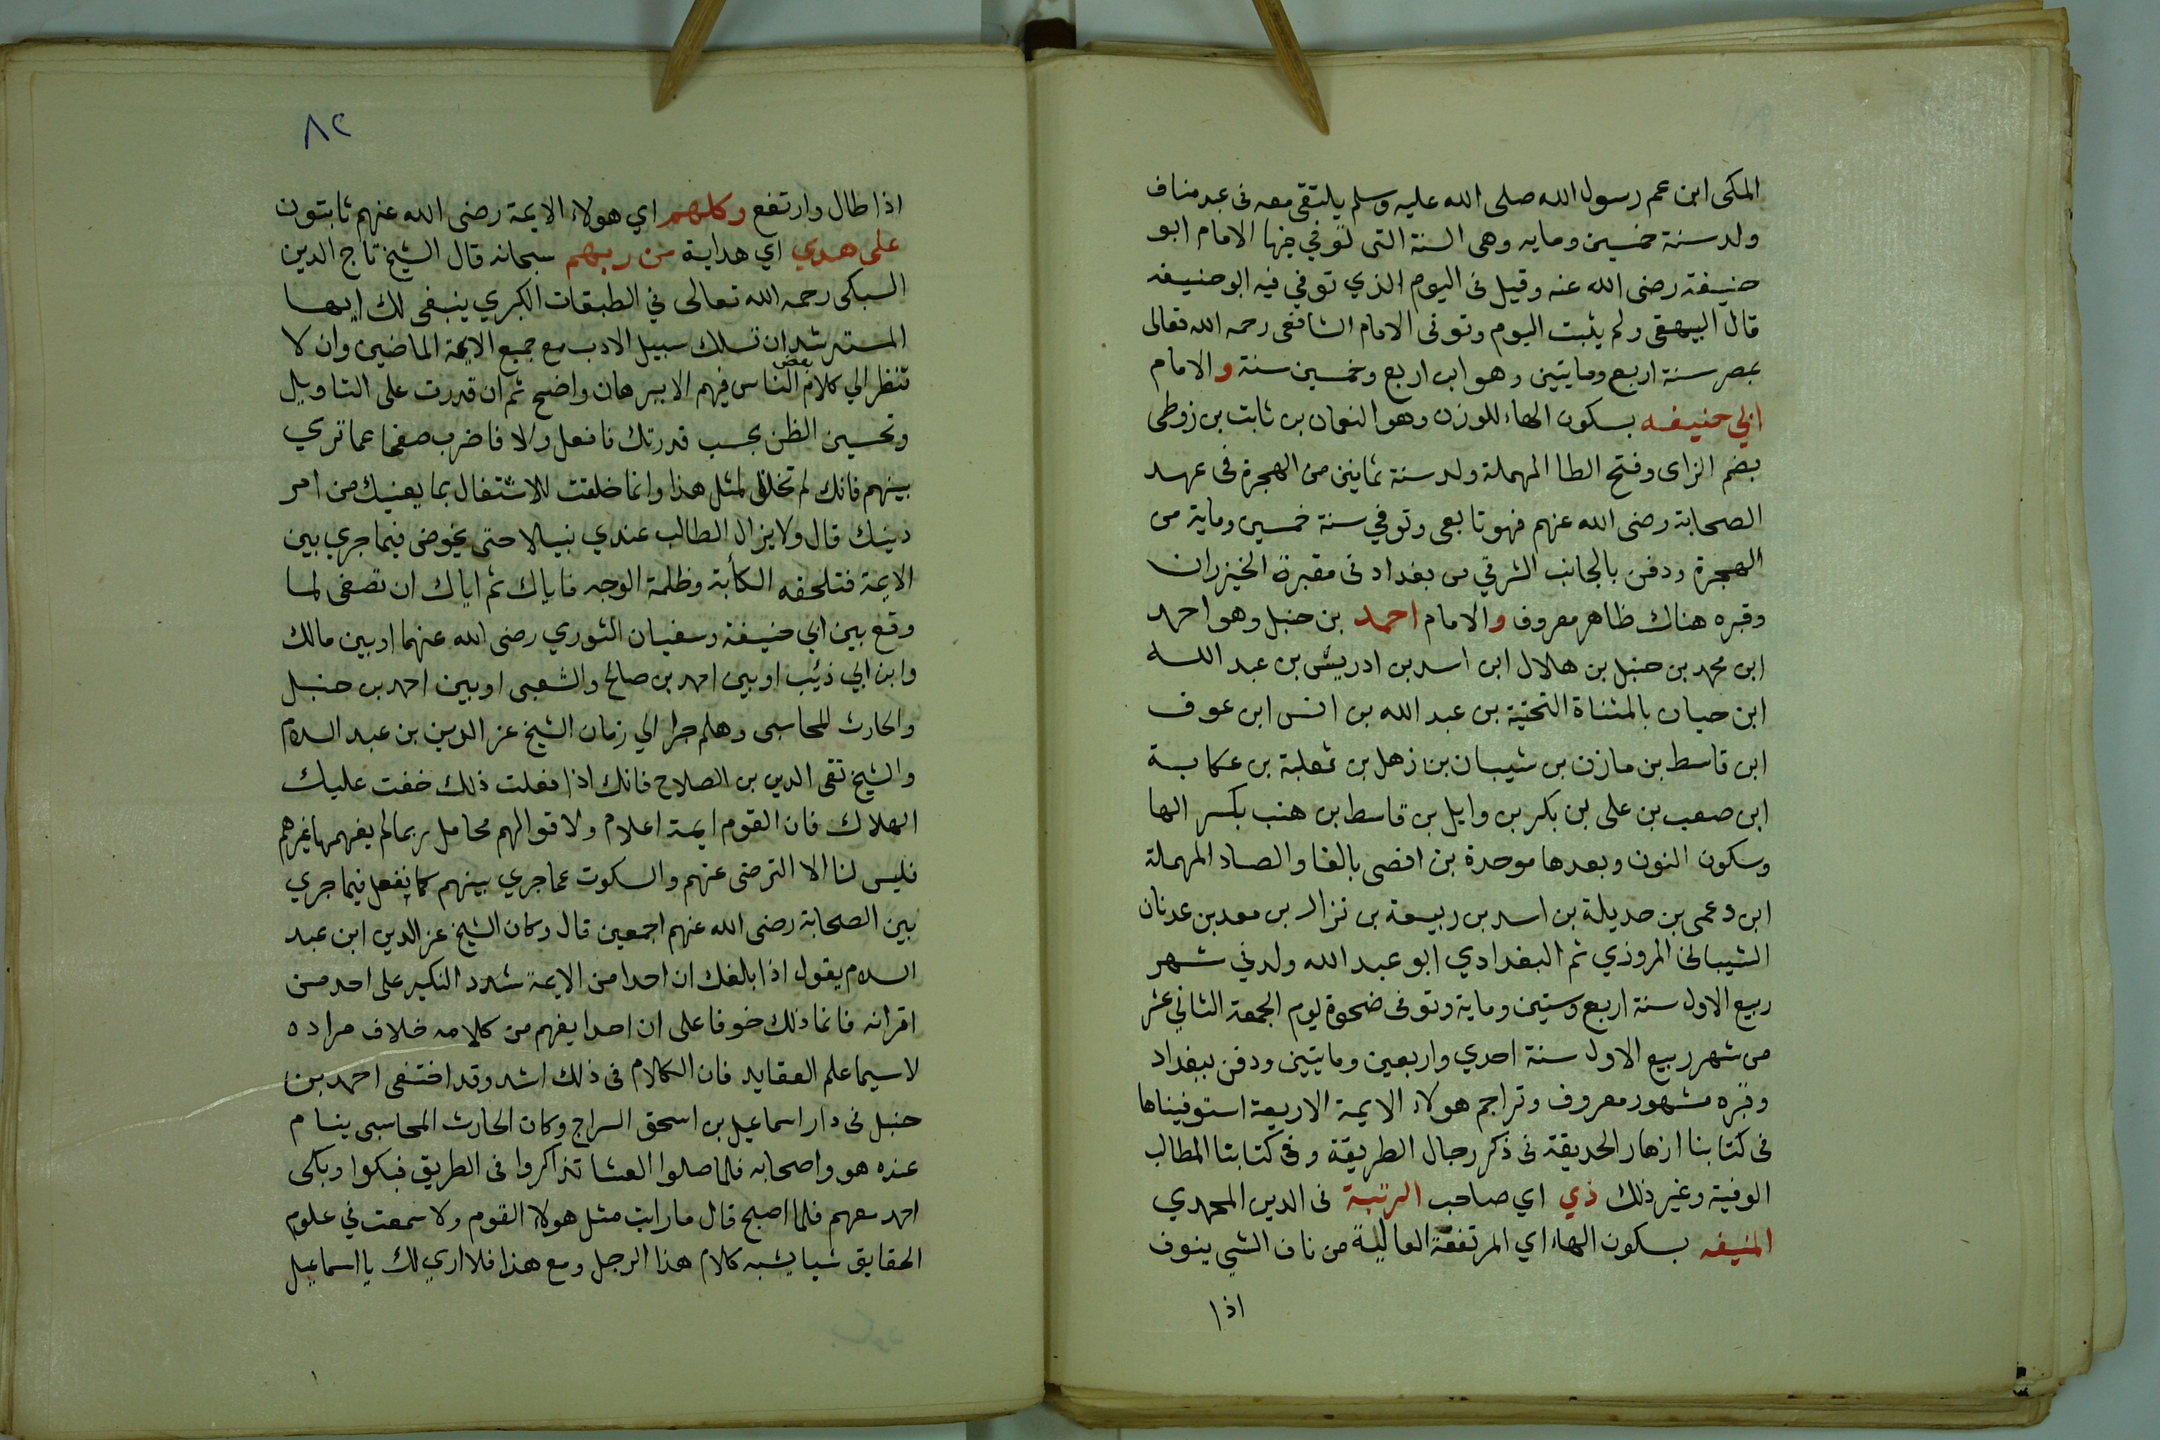 المكى ابن عم رسول الله صلى الله عليه وسلم يلتقى معه فى عبد مناف
ولد سنة خمسين ومايه وهى السنة التى توفي فيها الامام ابو
حنيفة رضى الله عنه وقيل فى اليوم الذي توفي فيه ابو حنيفه
قال البيهقى ولم يثبت اليوم وتوفى الامام الشافعى رحمه الله تعالى
بمصر سنة اربع ومايتين وهو ابن اربع وخمسين سنة والامام
ابي حنيفه بسكون الهاء للوزن وهو النعمان بن ثابت بن زوطى
بضم الزاى وفتح الطا المهملة ولد سنة ثمانين من الهجرة فى عهد
الصحابة رضى الله عنهم فهو تابعى وتوفي سنة خمسين وماية من
الهجرة ودفن بالجانب الشرقي من بغداد فى مقبرة الخيزران
وقبره هناك ظاهر معروف والامام احمد بن حنبل وهو احمد
ابن محمد بن حنبل بن هلال ابن اسد بن ادريس بن عبد الله
ابن حيان بالمثناة التحتية بن عبد الله بن انس ابن عوف
ابن قاسط بن مازن بن شيبان بن ذهل بن ثعلبة بن عكابة
ابن صعب بن على بن بكر بن وايل بن قاسط بن هنب بكسر الها
وسكون النون وبعدها موحدة بن افصى بالفا والصاد المهملة
ابن دعمى بن جديلة بن اسد بن ربيعة بن نزار بن معد بن عدنان
الشيبانى المروزي ثم البغدادي ابو عبد الله ولد في شهر
ربيع الاول سنة اربع وستين وماية وتوفى ضحوة يوم الجمعة الثاني عشر
من شهر ربيع الاول سنة احدي واربعين ومايتين ودفن ببغداد
وقبره مشهور معروف وتراجم هولاء الايمة الاربعة استوفيناها
فى كتابنا ازهار الحديقة فى ذكر رجال الطريقة وفى كتابنا المطالب
الوفية وغير ذلك ذي اي صاحب الرتبة فى الدين المحمدي
المنيفه بسكون الهاء اي المرتفعة العالية من ناف الشي ينوف
اذا
٨٢
اذا طال وارتفع وكلهم اي هولاء الايمة رضى الله عنهم ثابتون
على هدي اي هداية من ربهم سبحانه قال الشيخ تاج الدين
السبكى رحمه الله تعالى في الطبقات الكبري ينبغى لك ايها
المسترشد ان تسلك سبيل الادب مع جميع الايمة الماضين وان لا
تنظر الي كلام بعض الناس فيهم الا ببرهان واضح ثم ان قدرت على التاويل
وتحسين الظن بحسب قدرتك فافعل والا فاضرب صفحا عما تري
بينهم فانك لم تخلق لمثل هذا وانما خلقت للاشتغال بما يعنيك من امر
دينك قال ولا يزال الطالب عندي نبيلا حتى يخوض فيما جري بين
الايمة فتلحقه الكأبة وظلمة الوجه فاياك ثم اياك ان تصغى لما
وقع بين ابي حنيفة وسفيان الثوري رضى الله عنهما او بين مالك
وابن ابي ذئب او بين احمد بن صالح والشعبى او بين احمد بن حنبل
والحارث المحاسبى وهلم جرا الي زمان الشيخ عز الدين بن عبد السلام
والشيخ تقى الدين بن الصلاح فانك اذا فعلت ذلك خفت عليك
الهلاك فان القوم ايمة اعلام ولاقوالهم محامل ربما لم يفهمها غيرهم
فليس لنا الا الترضى عنهم والسكوت عما جري بينهم كما نفعل فيما جري
بين الصحابة رضى الله عنهم اجمعين قال وكان الشيخ عز الدين ابن عبد
السلام يقول اذا بلغك ان احدا من الايمة شدد النكير على احد من
اقرانه فانما ذلك خوفا على ان احدا يفهم من كلامه خلاف مراده
لاسيما علم العقايد فان الكلام فى ذلك اشد وقد اختفى احمد بن
حنبل فى دار اسماعيل بن اسحق السراج وكان الحارث المحاسبى ينام
عنده هو واصحابه فلما صلوا العشا تذاكروا فى الطريق فبكوا وبكى
احمد معهم فلما اصبح قال ما رايت مثل هولاء القوم ولا سمعت في علوم
الحقايق شيا يشبه كلام هذا الرجل ومع هذا فلا اري لك يا اسماعيل